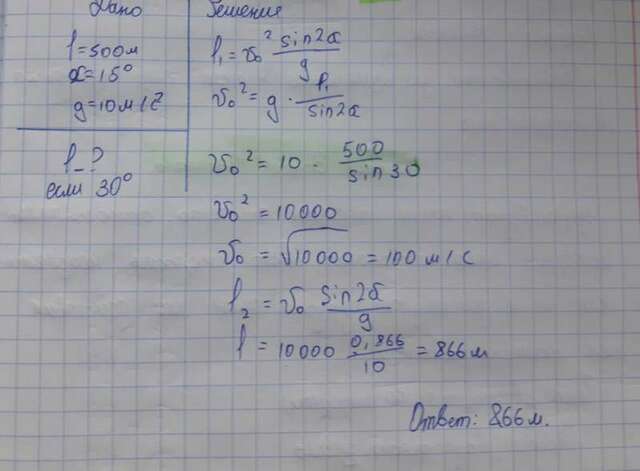 Дано
l = 500м
α = 15°
g = 10 м/с²
l - ?
если 30°
Решение
l₁ = v₀² sin2α / g
v₀² = g · l₁ / sin2α
v₀² = 10 · 500 / sin30
v₀² = 10000
v₀ = √10000 = 100 м/с
l₂ = v₀ sin2α / g
l = 10000 0,866 / 10 = 866 м
Ответ: 866 м.